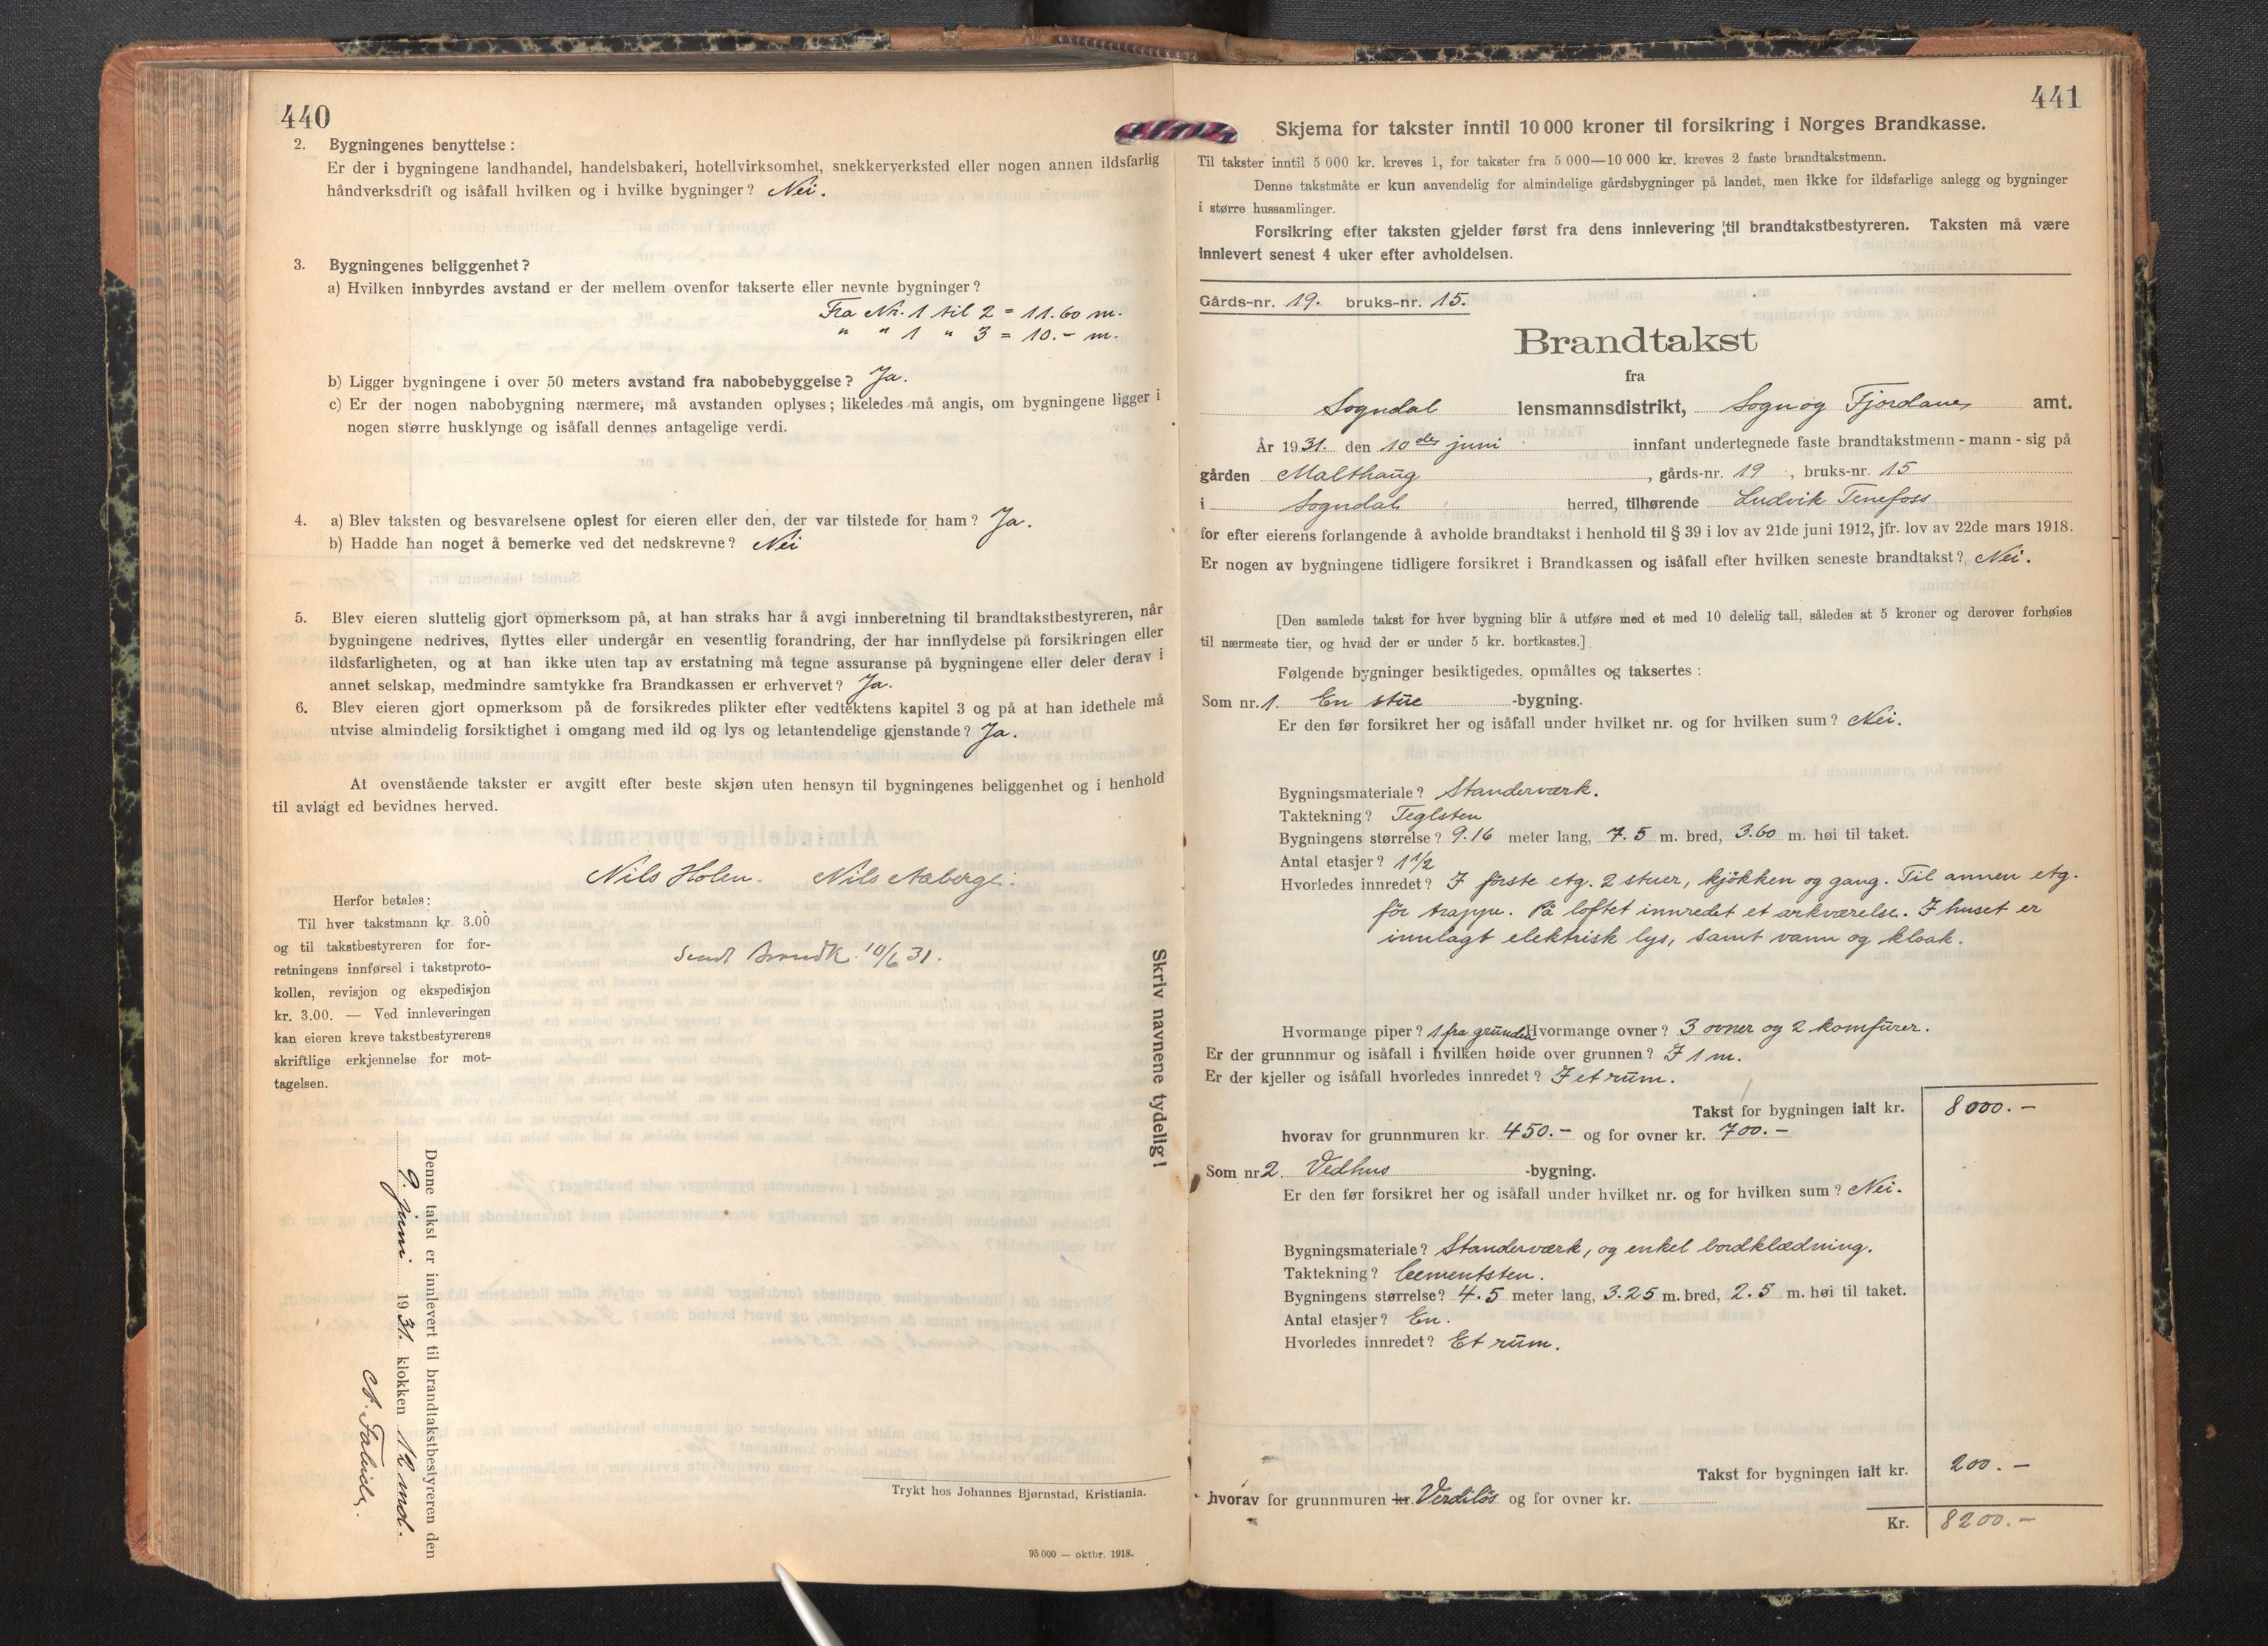 440
2. Bygningenes benyttelse :
Er der i bygningene landhandel, handelsbakeri, hotellvirksomhet, snekkerverksted eller nogen annen ildsfarlig
håndverksdrift og isåfall hvilken og i hvilke bygninger? Nei.
3. Bygningenes beliggenhet?
a) Hvilken innbyrdes avstand er der mellem ovenfor takserte eller nevnte bygninger?
Fra Nr. 1 til 2 = 11.60 m.
" " 1 " 3 = 10.- m.
b) Ligger bygningene i over 50 meters avstand fra nabobebyggelse? Ja.
c) Er der nogen nabobygning nærmere, må avstanden oplyses; likeledes må angis, om bygningene ligger i
nogen større husklynge og isåfall dennes antagelige verdi.
4. a) Blev taksten og besvarelsene oplest for eieren eller den, der var tilstede for ham? Ja.
b) Hadde han noget å bemerke ved det nedskrevne? Nei
5. Blev eieren sluttelig gjort opmerksom på, at han straks har å avgi innberetning til brandtakstbestyreren, når
bygningene nedrives, flyttes eller undergår en vesentlig forandring, der har innflydelse på forsikringen eller
ildsfarligheten, og at han ikke uten tap av erstatning må tegne assuranse på bygningene eller deler derav i
annet selskap, medmindre samtykke fra Brandkassen er erhvervet? Ja.
6. Blev eieren gjort opmerksom på de forsikredes plikter efter vedtektens kapitel 3 og på at han idethele må
utvise almindelig forsiktighet i omgang med ild og lys og letantendelige gjenstande? Ja.
At ovenstående takster er avgitt efter beste skjøn uten hensyn til bygningenes beliggenhet og i henhold
til avlagt ed bevidnes herved.
Nils Holen. Nils Aaberge.
Sendt Brandk. 10/6 31.
Herfor betales:
Til hver takstmann kr. 3.00
og til takstbestyreren for for-
retningens innførsel i takstproto-
kollen, revisjon og ekspedisjon
kr. 3.00. — Ved innleveringen
kan eieren kreve takstbestyrerens
skriftlige erkjennelse for mot-
tagelsen.
Skriv navnene tydelig!
Denne takst er innlevert til brandtakstbestyreren den
9. juni 1931. klokken 12 md.
Trykt hos Johannes Bjørnstad, Kristiania.
95 000 — oktbr. 1918.
441
Skjema for takster inntil 10 000 kroner til forsikring i Norges Brandkasse.
Til takster inntil 5 000 kr. kreves 1, for takster fra 5 000—10 000 kr. kreves 2 faste brandtakstmenn.
Denne takstmåte er kun anvendelig for almindelige gårdsbygninger på landet, men ikke for ildsfarlige anlegg og bygninger
i større hussamlinger.
Forsikring efter taksten gjelder først fra dens innlevering til brandtakstbestyreren. Taksten må være
innlevert senest 4 uker efter avholdelsen.
Gårds-nr. 19. bruks-nr. 15.
Brandtakst
fra
Sogndal lensmannsdistrikt, Sogn og Fjordane amt.
År 1931. den 10de juni innfant undertegnede faste brandtakstmenn - mann - sig på
gården Malthaug, gårds-nr. 19, bruks-nr. 15
i Sogndal herred, tilhørende Ludvik Tenefoss
for efter eierens forlangende å avholde brandtakst i henhold til § 39 i lov av 21de juni 1912, jfr. lov av 22de mars 1918.
Er nogen av bygningene tidligere forsikret i Brandkassen og isåfall efter hvilken seneste brandtakst? Nei.
[Den samlede takst for hver bygning blir å utføre med et med 10 delelig tall, således at 5 kroner og derover forhøies
til nærmeste tier, og hvad der er under 5 kr. bortkastes.]
Følgende bygninger besiktigedes, opmåltes og taksertes :
Som nr. 1. En stue -bygning.
Er den før forsikret her og isåfall under hvilket nr. og for hvilken sum? Nei.
Bygningsmateriale? Standerværk.
Taktekning? Teglsten
Bygningens størrelse? 9.16 meter lang, 7.5 m. bred, 3.60 m. høi til taket.
Antal etasjer? 1 1/2
Hvorledes innredet? I förste etg. 2 stuer, kjökken og gang. Til annen etg.
för trappe. På loftet innredet et arkværelse. I huset er
innlagt elektrisk lys, samt vann og kloak.
Hvormange piper? 1 fra grunden Hvormange ovner? 3 ovner og 2 komfurer.
Er der grunnmur og isåfall i hvilken høide over grunnen? I 1 m.
Er der kjeller og isåfall hvorledes innredet? I et rum.
Takst for bygningen ialt kr. 8000.-
hvorav for grunnmuren kr. 450.- og for ovner kr. 700.-
Som nr. 2. Vedhus -bygning.
Er den før forsikret her og isåfall under hvilket nr. og for hvilken sum? Nei.
Bygningsmateriale? Standerværk, og enkel bordklædning.
Taktekning? Cementsten.
Bygningens størrelse? 4.5 meter lang, 3.25 m. bred, 2.5 m. høi til taket.
Antal etasjer? En.
Hvorledes innredet? Et rum.
Takst for bygningen ialt kr. 200.-
hvorav for grunnmuren kr. Verdilös og for ovner kr.
Kr. 8200.-